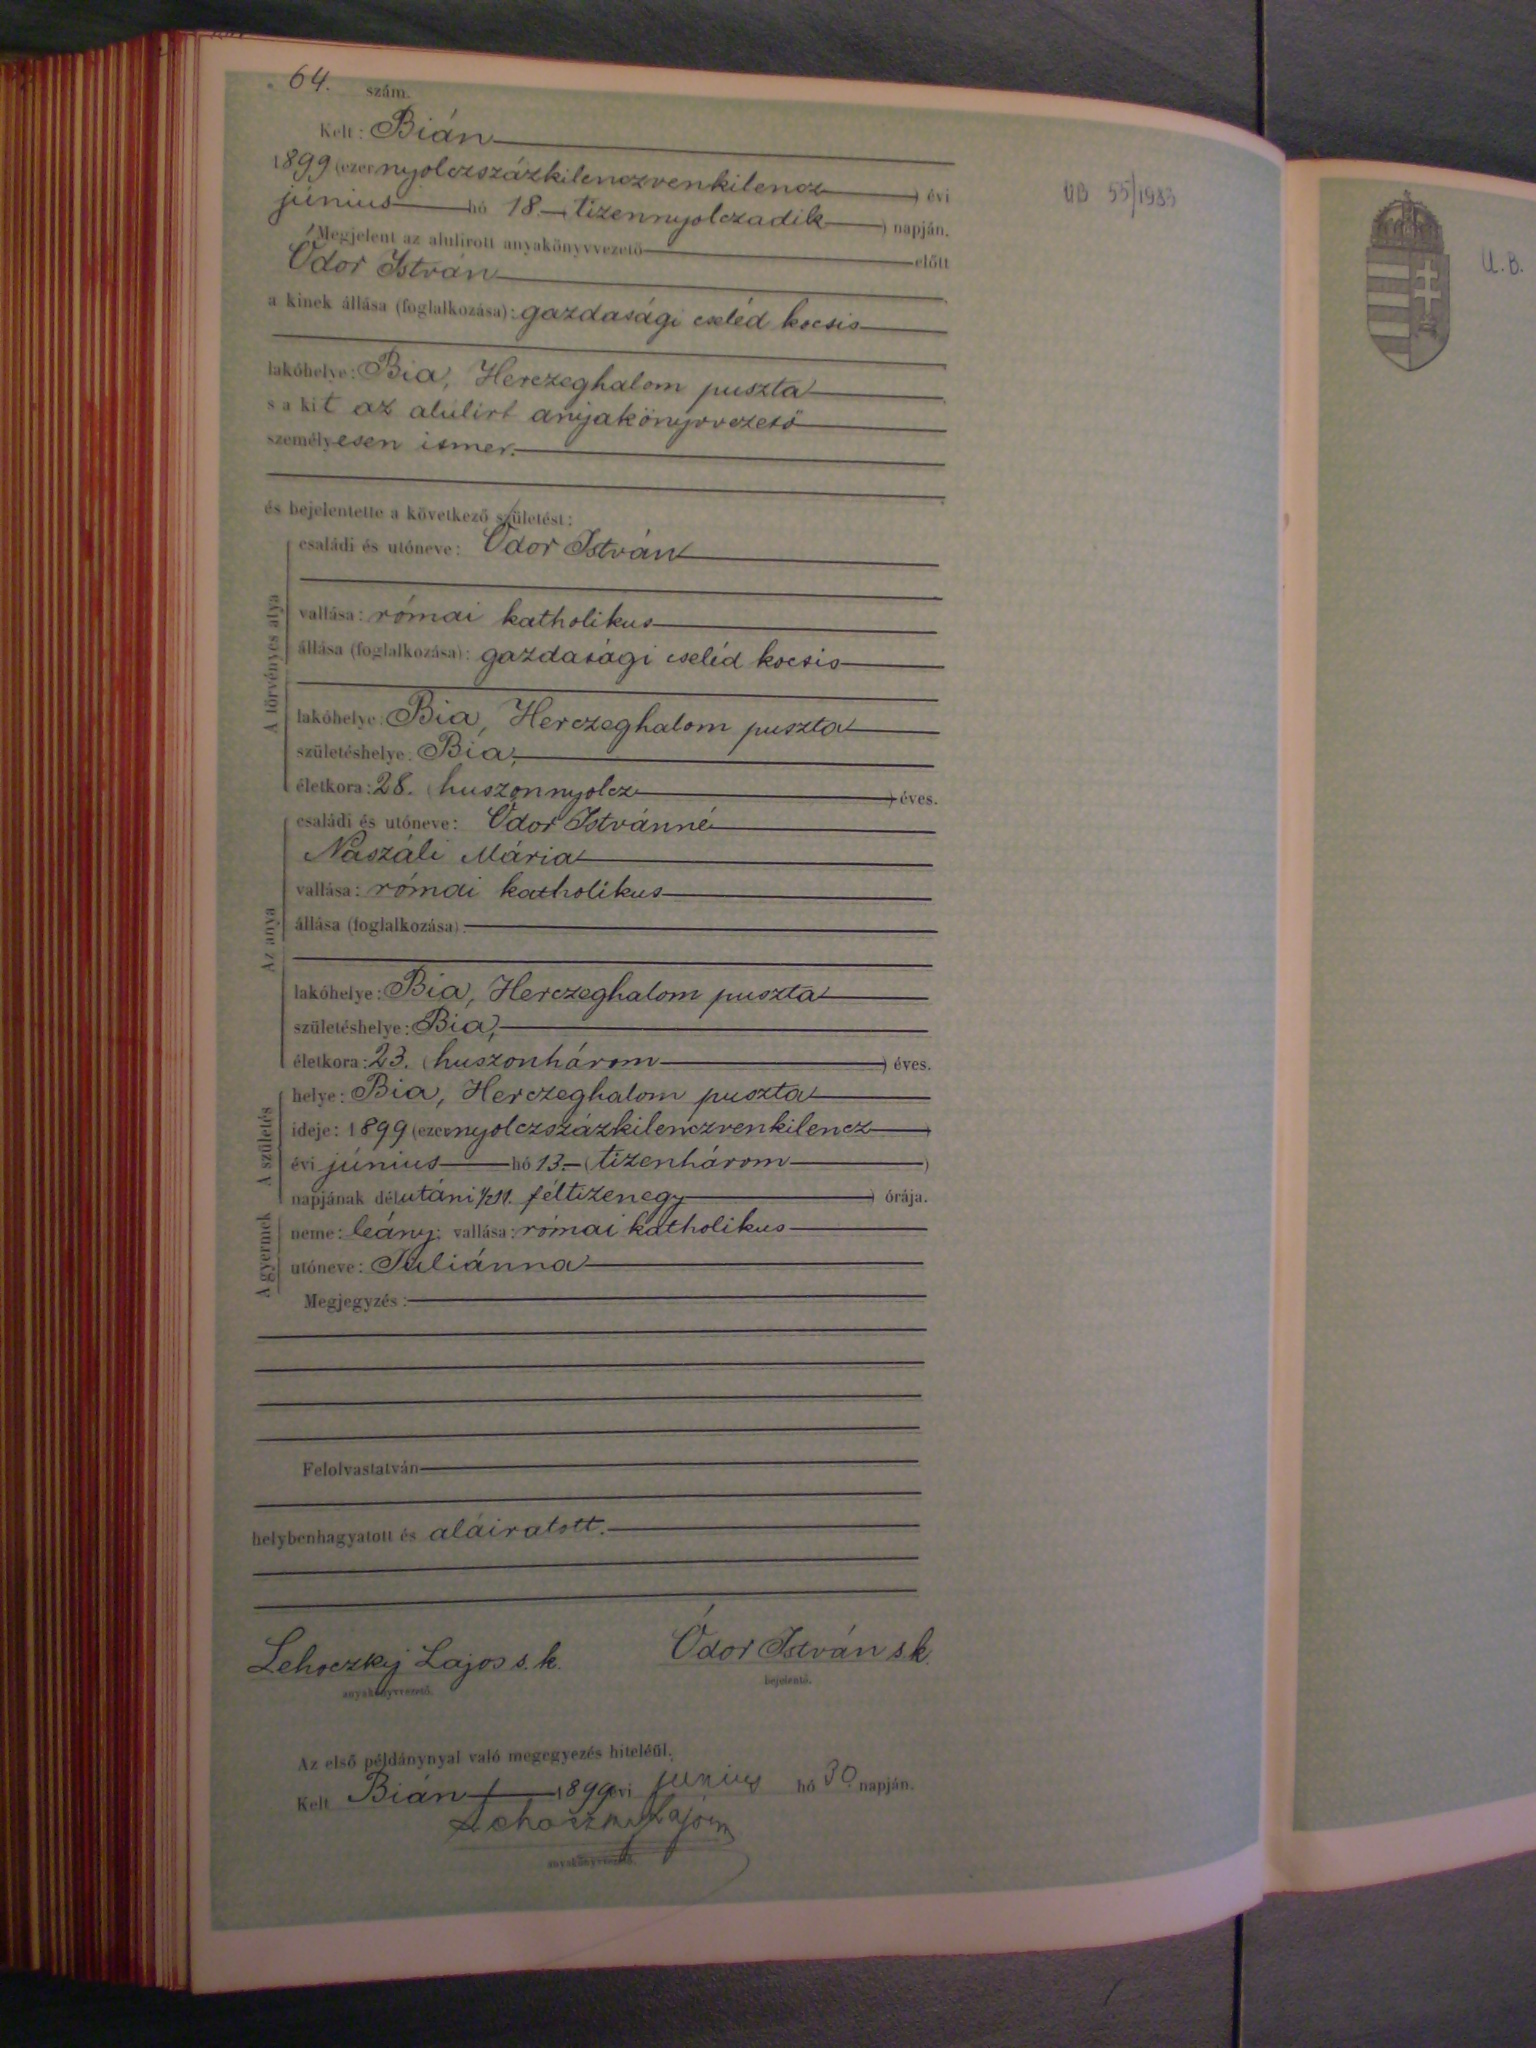 64. szám.
Kelt: Bián
1899 (ezernyolczszázkilenczvenkilencz) évi
június hó 18. (tizennyolczadik) napján.
Megjelent az alulirott anyakönyvvezető előtt
Ódor István
a kinek állása (foglalkozása): gazdasági cseléd kocsis
lakóhelye: Bia, Herczeghalom puszta
s a kit az alulirt anyakönyvvezető
személyesen ismer.
és bejelentette a következő születést:
A törvényes atya
családi és utóneve: Ódor István
vallása: római katholikus
állása (foglalkozása): gazdasági cseléd kocsis
lakóhelye: Bia, Herczeghalom puszta
születéshelye: Bia,
életkora: 28. (huszonnyolcz) éves.
Az anya
családi és utóneve: Ódor Istvánné
Naszáli Mária
vallása: római katholikus
állása (foglalkozása):
lakóhelye: Bia, Herczeghalom puszta
születéshelye: Bia,
életkora: 23. (huszonhárom) éves.
A születés
helye: Bia, Herczeghalom puszta
ideje: 1899 (ezernyolczszázkilenczvenkilencz)
évi június hó 13. (tizenhárom)
napjának délutáni ½11. féltizenegy) órája.
A gyermek
neme: leány; vallása: római katholikus
utóneve: Juliánna
Megjegyzés:
Felolvastatván
helybenhagyatott és aláiratott.
Lehoczky Lajos s. k. Ódor István s k.
anyakönyvvezető. bejelentő.
Az első példánynyal való megegyezés hiteléül.
Kelt Bián 1899 évi junius hó 30. napján.
Lehoczky Lajos
anyakönyvvezető.
UB 55/1983
U.B.